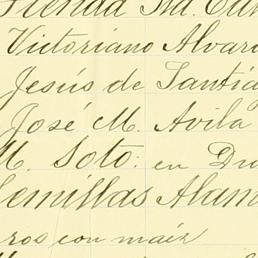 Tienda Na. Can
Victoriano Alvar
Jesús de Santia
José M. Avila
M. Soto: en Du
Semillas Alam
ros con maíz